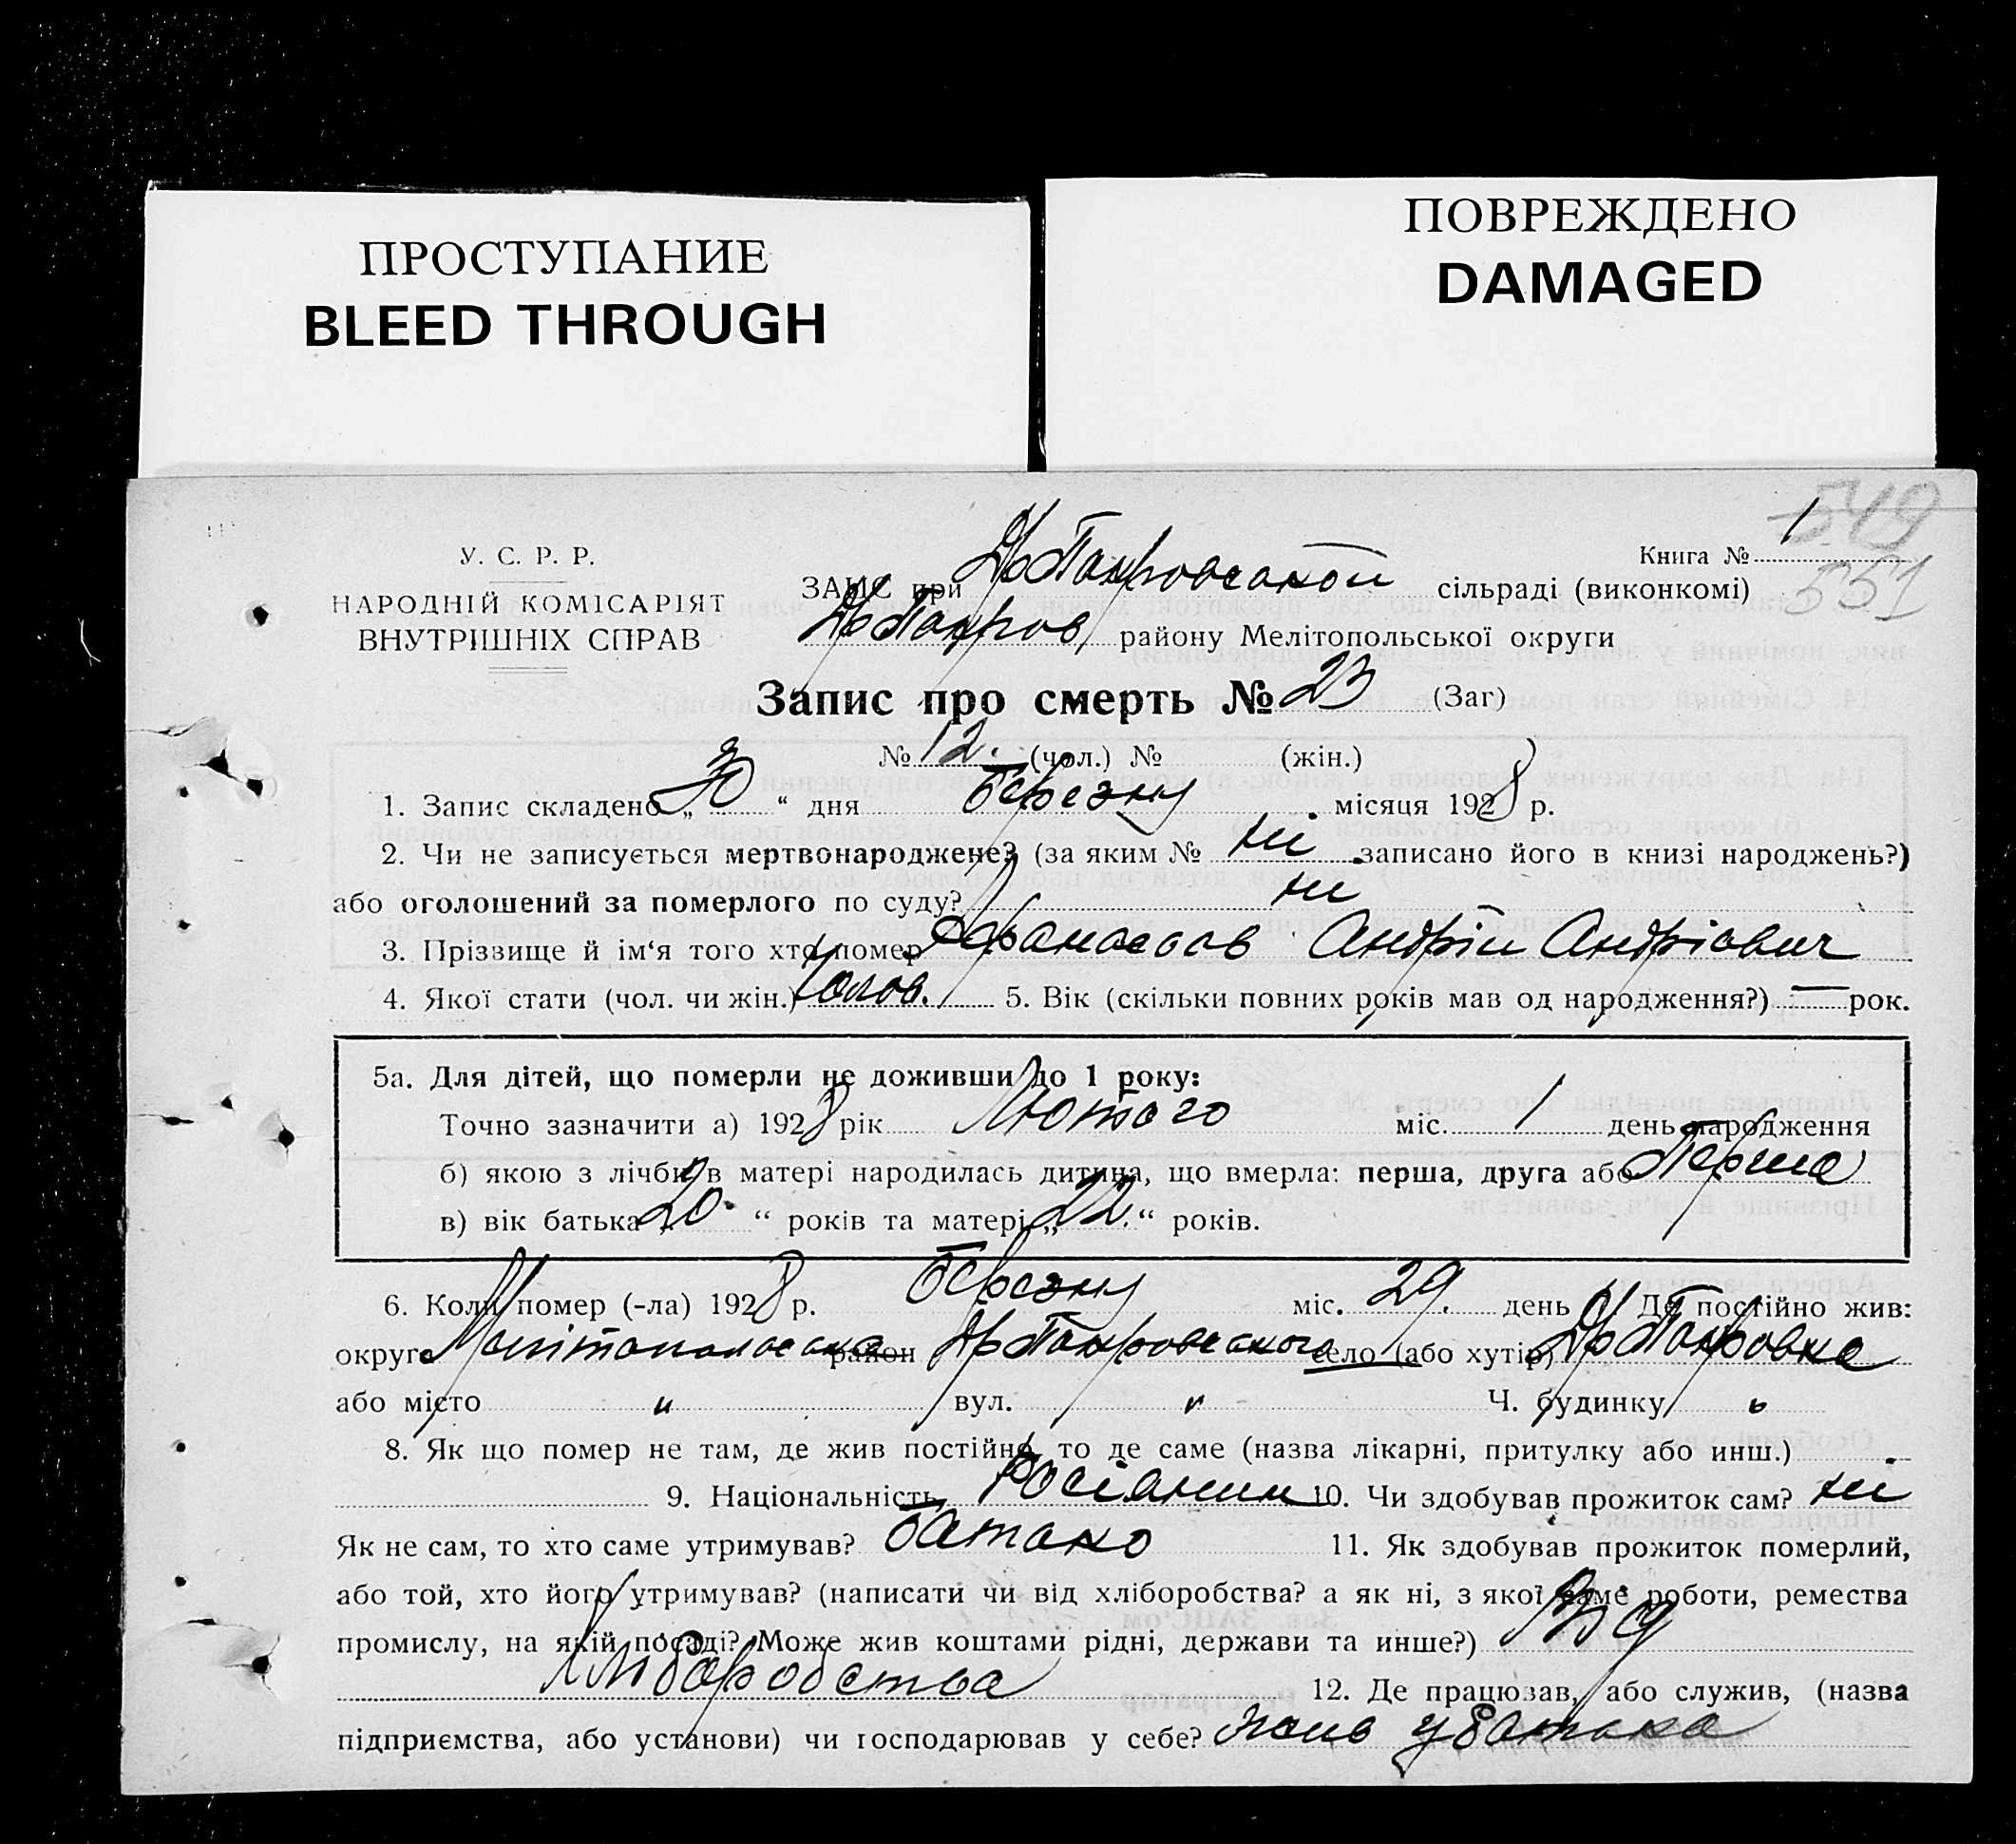 ПРОСТУПАНИЕ
BLEED THROUGH
ПОВРЕЖДЕНО
DAMAGED
549
551
У. С. Р. Р.
НАРОДНІЙ КОМІСАРІЯТ
ВНУТРІШНІХ СПРАВ
Книга № 1
ЗАГС при сільраді (виконкомі)
району Мелітопольської округи
Запис про смерть № 23 (Заг)
№ 12. (чол.) № (жін.)
1. Запис складено „ 30 “ дня березня місяця 1928 р.
2. Чи не записується мертвонароджене? (за яким № ні записано його в книзі народжень?)
або оголошений за померлого по суду? ні
3. Прізвище й ім‘я того хто помер Андрій Андріович
4. Якої стати (чол. чи жін.) Чолов. 5. Вік (скільки повних років мав од народження?) — рок.
5а. Для дітей, що померли не доживши до 1 року:
Точно зазначити а) 1928 рік Лютого міс. 1 день народження
б) якою з лічби в матері народилась дитина, що вмерла: перша, друга або Перша
в) вік батька „ 20 “ років та матері „ 22. “ років.
6. Коли помер (-ла) 1928 р. березня міс. 29. день Де постійно жив:
округа Мелітопольська район село (або хутір)
або місто " вул. " Ч. будинку "
8. Як що помер не там, де жив постійно, то де саме (назва лікарні, притулку або инш.)
9. Національність Росіянин 10. Чи здобував прожиток сам? ні
Як не сам, то хто саме утримував? батько 11. Як здобував прожиток померлий,
або той, хто його утримував? (написати чи від хліборобства? а як ні, з якої саме роботи, ремества
промислу, на якій посаді? Може жив коштами рідні, держави та инше?) Від
хліборобства 12. Де працював, або служив, (назва
підприємства, або установи) чи господарював у себе? у батька